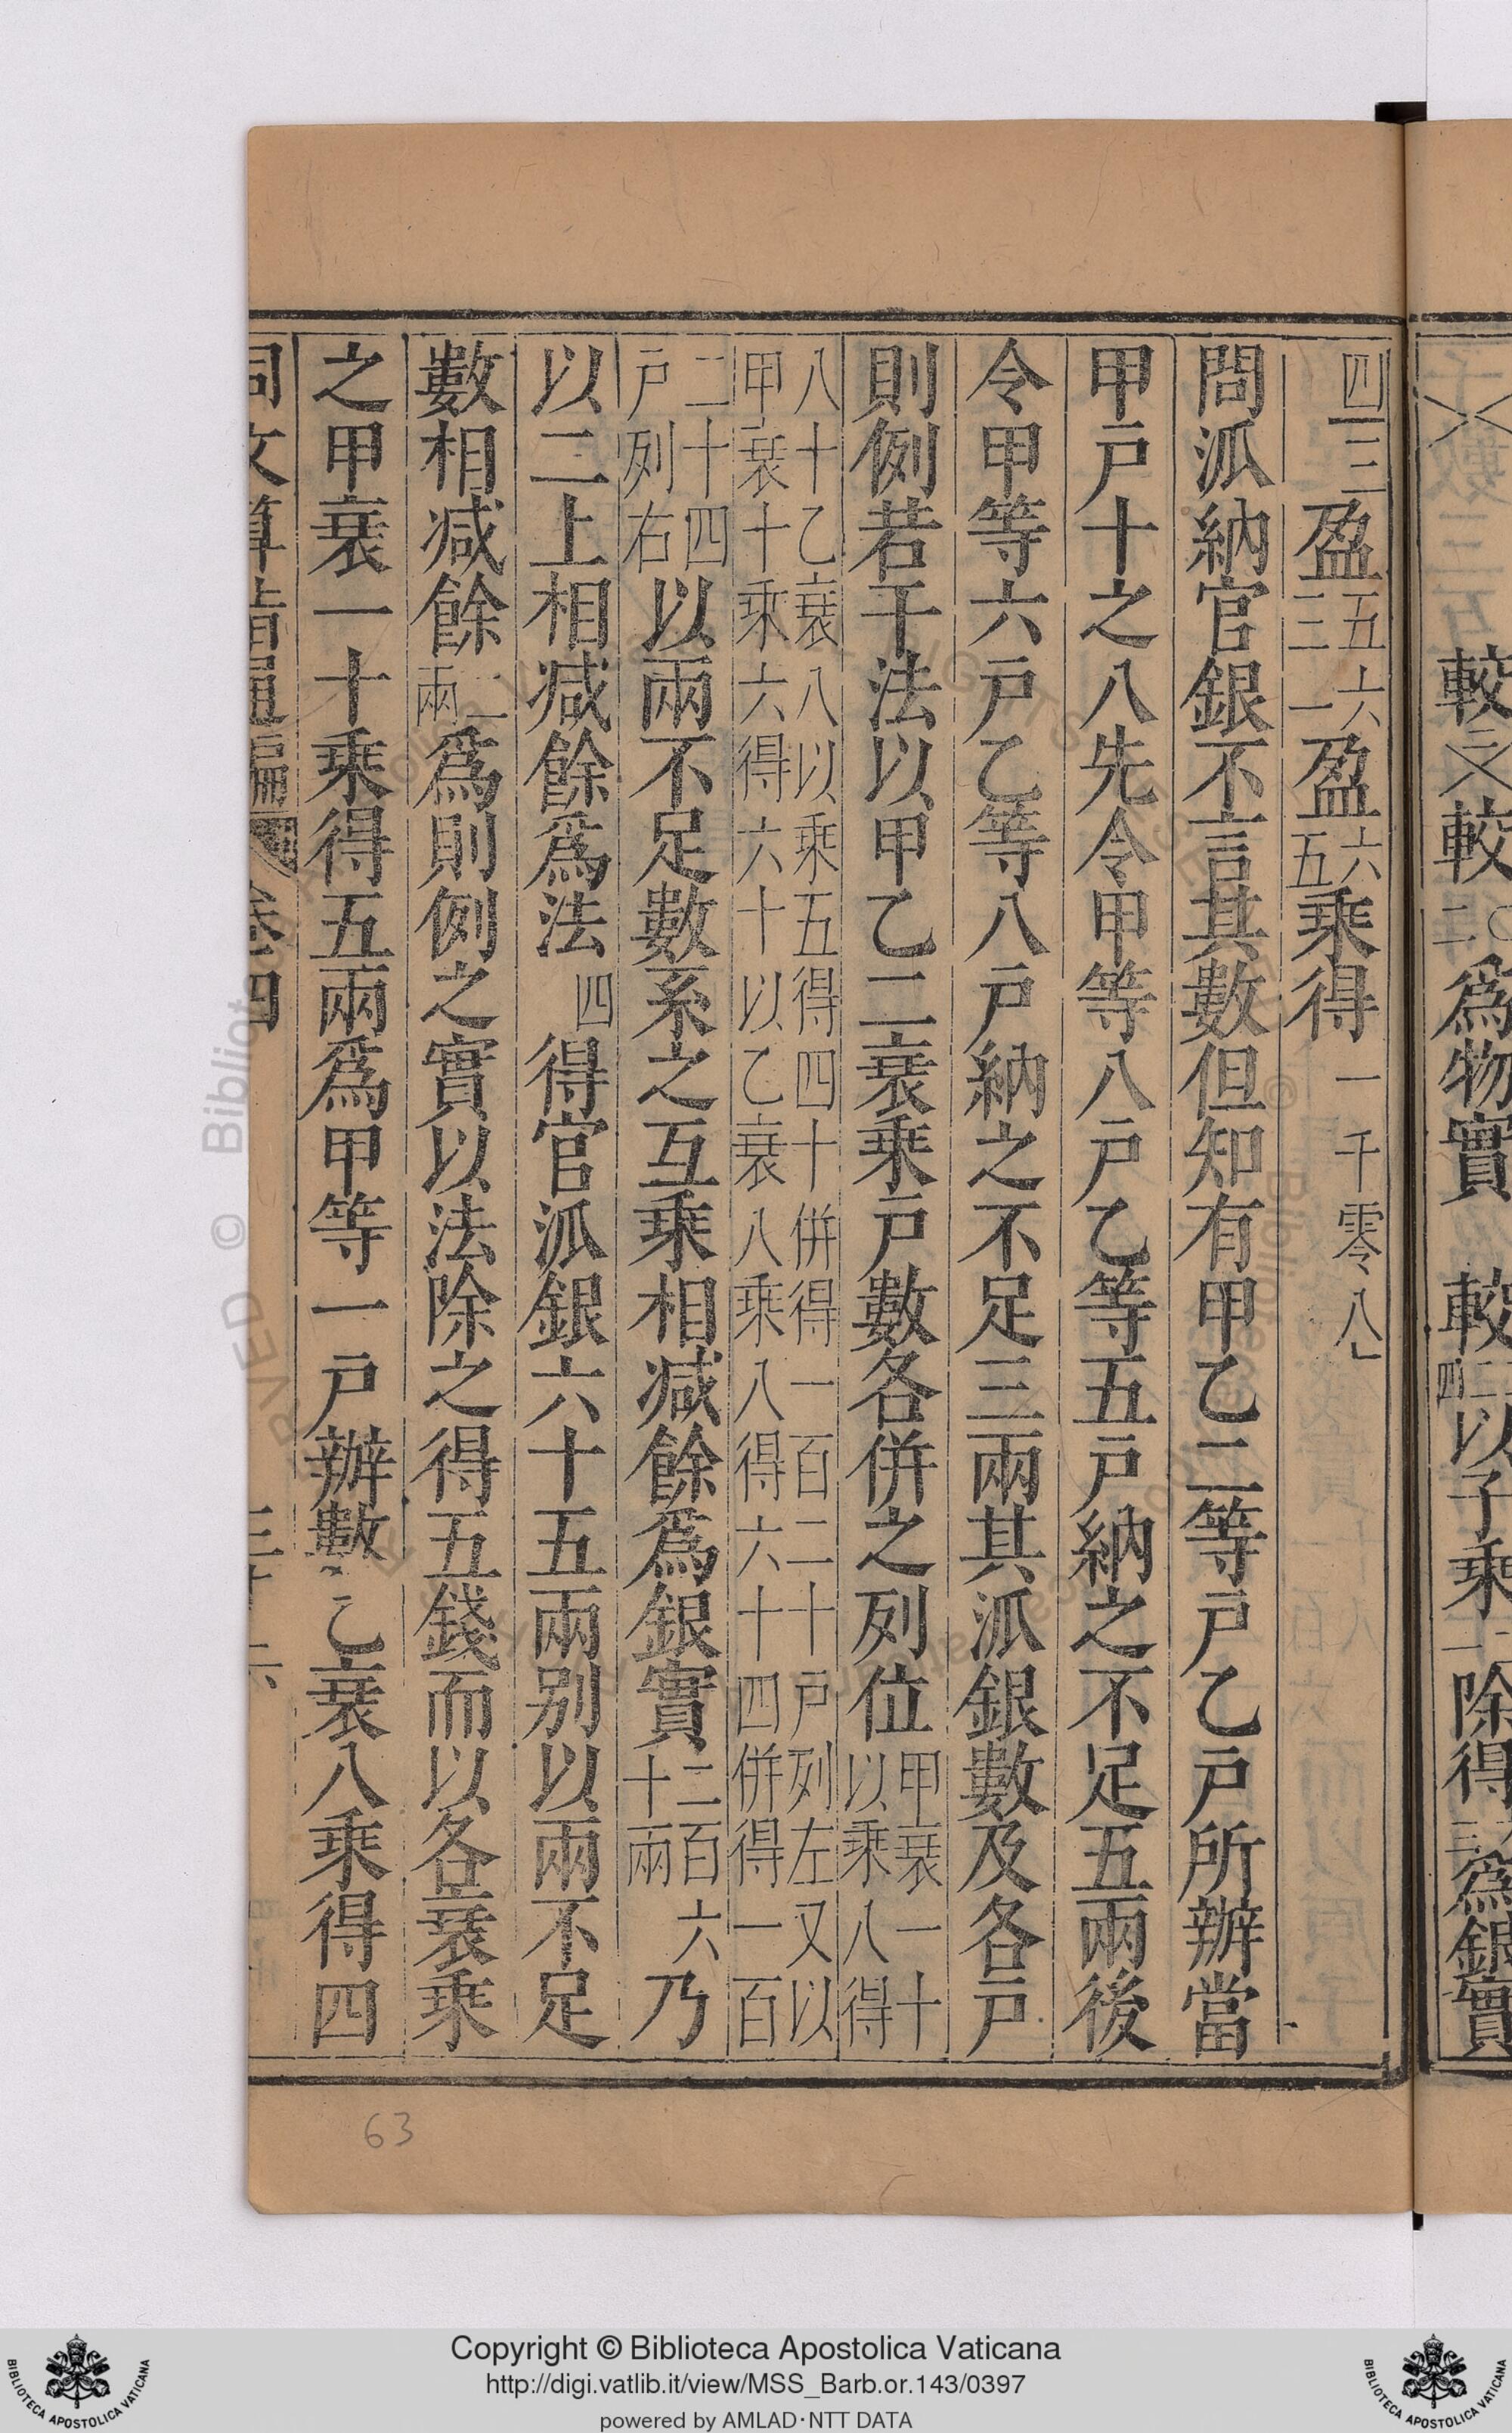 較　較二〇爲物實　較四二以子乘除得爲銀實
四三盈五六二三一盈六五乘得一千零八
問派納官銀不言其數但知有甲乙二等戸乙戸所辦當
甲戸十之八先令甲等八戸乙等五戸納之不足五兩後
令甲等六戸乙等八戸納之不足三兩其派銀數及各戸
則例若干法以甲乙二衰乘戸數各併之列位甲衰一十以乘八得
八十乙衰八以乘五得四十併得一百二十戸列左又以
甲衰十乘六得六十以乙衰八乘八得六十四併得一百
二十四戸列右以兩不足數系之互乘相减餘爲銀實二百六十兩乃
以二上相减餘爲法四得官派銀六十五兩别以兩不足
數相减餘二兩爲則例之實以法除之得五錢而以各衰乘
之甲衰一十乘得五兩爲甲等一戸辦數乙衰八乘得四
同文算指通編 卷四
63
Copyright © Biblioteca Apostolica Vaticana
http://digi.vatlib.it/view/MSS_Barb.or.143/0397
powered by AMLAD·NTT DATA
BIBLIOTECA APOSTOLICA VATICANA
BIBLIOTECA APOSTOLICA VATICANA